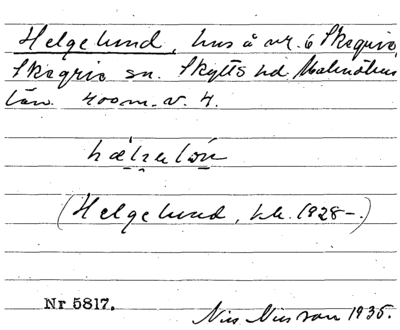 Helgelund, hus å nr. 6 Skegrie,
Skegrie sn. Skytts hd. Malmöhus
län. 400 m. v. 4.
(Helgelund, kk. 1928-.)
Nr 5817.
Nils Nilsson 1935.